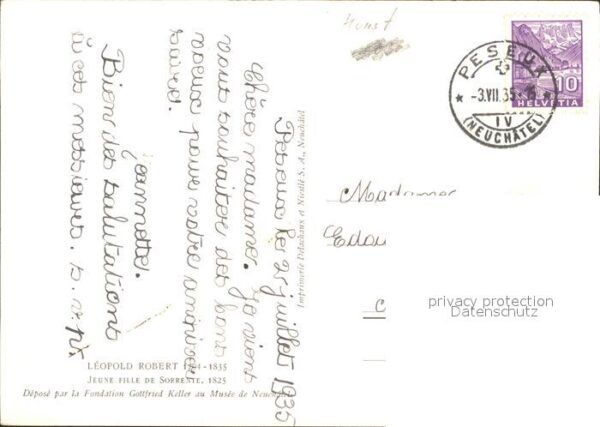 Kunst
PESEUX
-3.VII.35.-
IV
(NEUCHÂTEL)
10
HELVETIA
Peseux le 2 juillet 1935
Chère madame. Je viens
vous souhaiter des bons
voeux pour votre anniver
saire.
Jeannette.
Bien des salutations
à ces messieurs. s. v. pl.
Imprimerie Delachaux et Niestlé S. A., Neuchâtel
Madame
Edou
privacy protection
Datenschutz
LÉOPOLD ROBERT 1794-1835
JEUNE FILLE DE SORRENTE, 1825
Déposé par la Fondation Gottfried Keller au Musée de Neuch